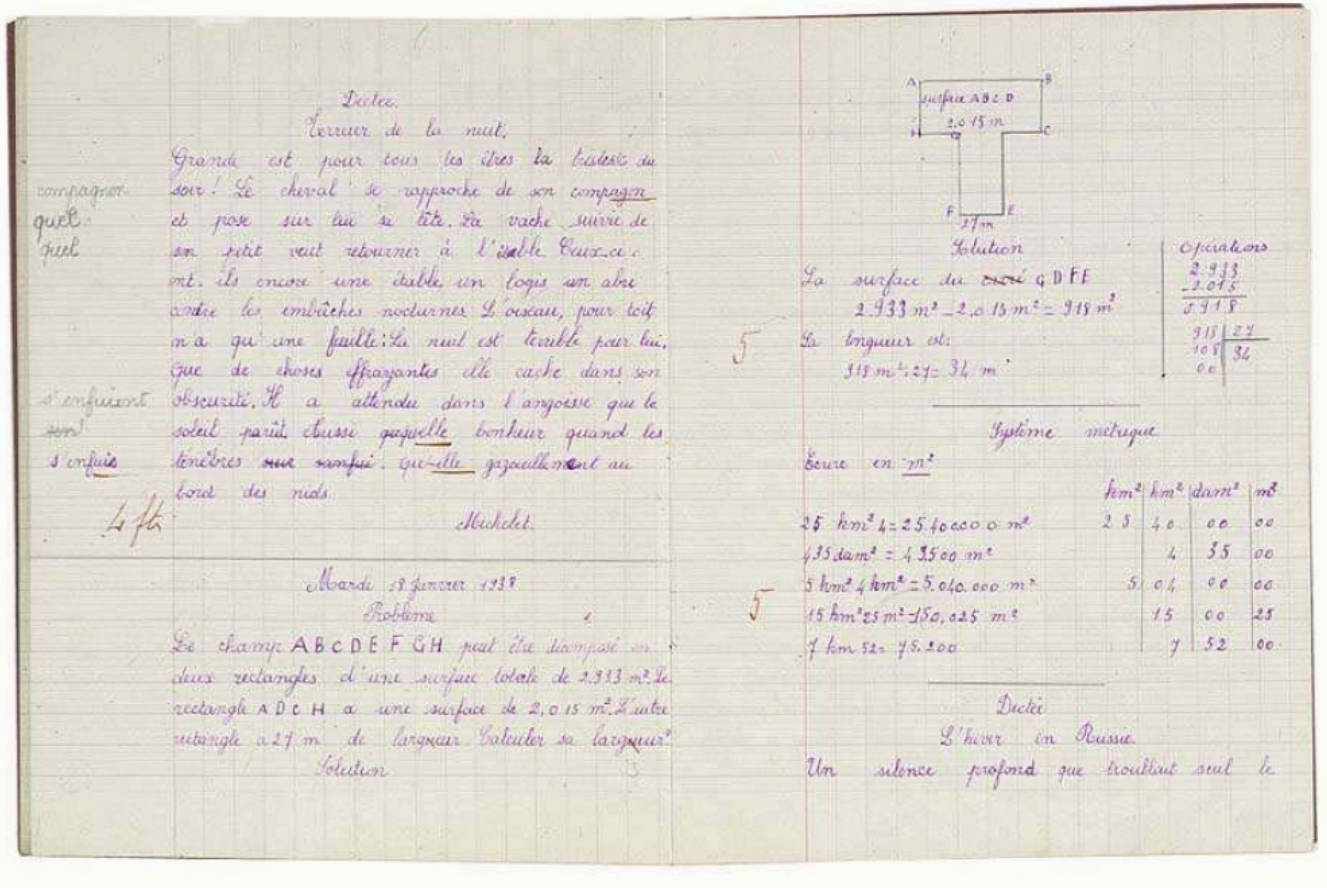 Dictée.
Terreur de la nuit.
Grande est pour tous les êtres la tristesse du
soir! Le cheval se rapproche de son compagon
et pose sur lui sa tête. La vache suivie de
son petit veut retourner à l'étable Ceux-ci
ont-ils encore une étable, un logis un abri
contre les embûches nocturnes L'oiseau, pour toit
n'a qu'une feuille: La nuit est terrible pour lui.
Que de choses effrayantes elle cache dans son
obscurité. Il a attendu dans l'angoisse que le
soleil parût. Aussi quelle bonheur quand les
ténèbres. Quelle gazouillement au
bord des nids
Michelet.
compagnon
quel
quel
s'enfuient
s'enfuis
4 fts
Mardi 18 Janvier 1938
Problème
Le champ ABCDEFGH peut être décomposé en
deux rectangles d'une surface totale de 2.933 m². Le
rectangle ADCH a une surface de 2,015 m². L'autre
rectangle a 27 m de largueur Calculer sa largueur
Solution
A B
surface ABCD
2.015 m
H G C
F E
27m
Solution
La surface du carré GDFE
2.933 m² - 2.015 m² = 918 m²
La longueur est:
918 m²: 27= 34 m
5
Opérations
2.933
-2.015
0.918
918 27
108 34
00
Système métrique
Écrire en m²
hm² dam² m²
25 km² 4= 25400000 m² 25 40 00 00
435dam² = 43500 m² 4 35 00
5 km² 4 hm² = 5.040.000 m² 5 04 00 00
15 hm² 25 m² =150,025 m² 15 00 25
7 hm 52= 75.200 7 52 00
5
Dictée
L'hiver en Russie.
Un silence profond que troublait seul le